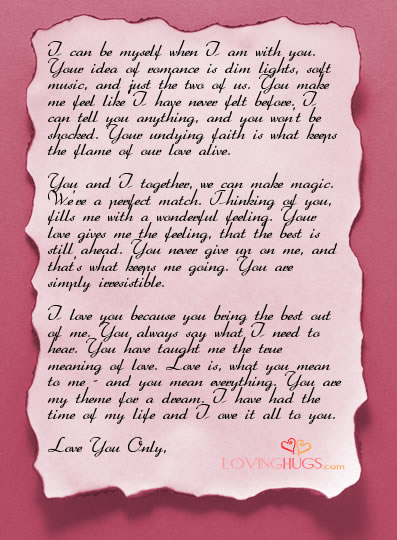 I can be myself when I am with you.
Your idea of romance is dim lights, soft
music, and just the two of us. You make
me feel like I have never felt before. I
can tell you anything, and you won't be
shocked. Your undying faith is what keeps
the flame of our love alive.
You and I together, we can make magic.
We're a perfect match. Thinking of you,
fills me with a wonderful feeling. Your
love gives me the feeling, that the best is
still ahead. You never give up on me, and
that's what keeps me going. You are
simply irresistible.
I love you because you bring the best out
of me. You always say what I need to
hear. You have taught me the true
meaning of love. Love is, what you mean
to me - and you mean everything. You are
my theme for a dream. I have had the
time of my life and I owe it all to you.
Love You Only,
LOVINGHUGS.com